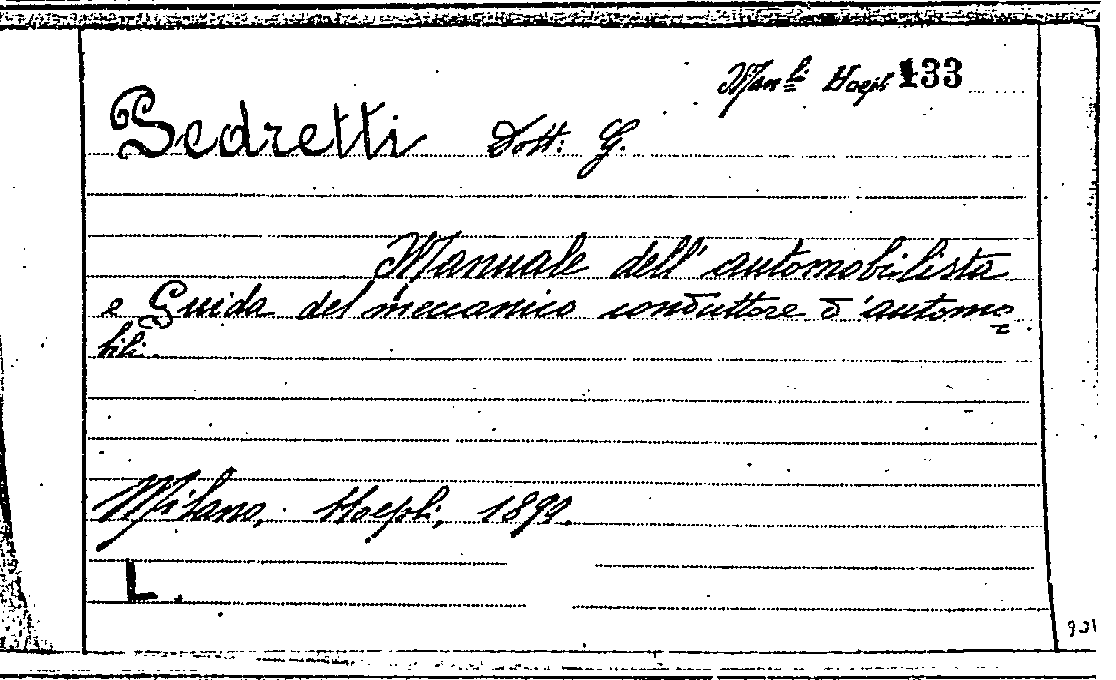 Man.li Hoepl 133
Pedretti Dott. G.
Manuale dell' automobilista
e Guida del meccanico conduttore d'automo=
bili.
Milano, Hoepli, 1899.
L.